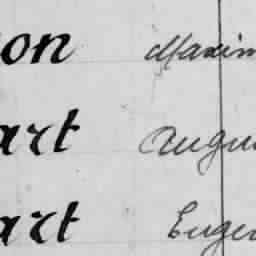 on Maxim
art Augu
art Euge